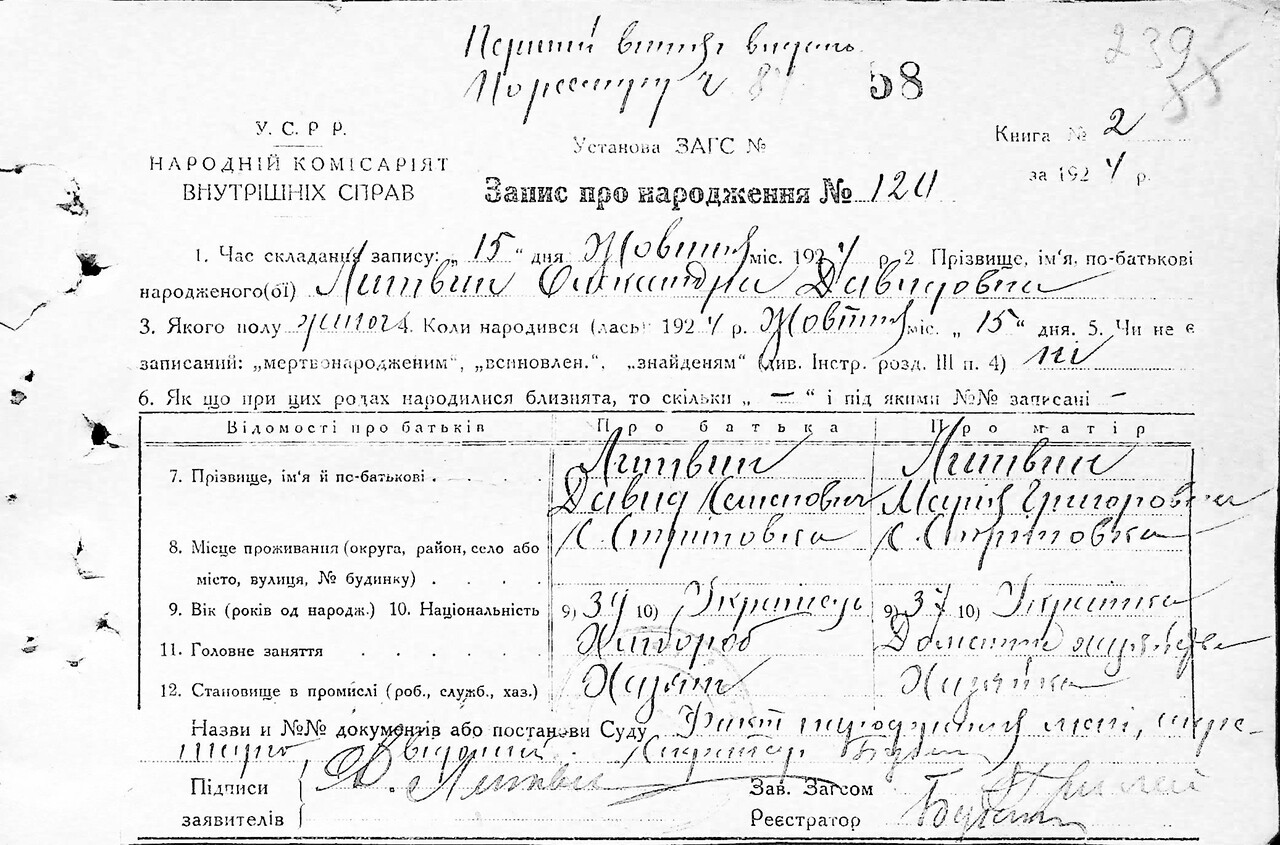 Перший витяг видань
58
239
У. С. Р Р.
НАРОДНІЙ КОМІСАРІЯТ
ВНУТРІШНІХ СПРАВ
Установа ЗАГС №
Книга № 2
за 1924 р.
Запис про народження № 124
1. Час складання запису: „ 15 " дня Жовтня міс. 1924 р 2 Прізвище, ім'я, по-батькові
народженого(ої) Литвин Олександра Давидовна
3. Якого полу жіночого 4. Коли народився (лась) 1924 р. Жовтня міс. „ 15 " дня. 5. Чи не є
записаний: „мертвонародженим", „всиновлен.", „знайденям" (див. Інстр. розд. III п. 4) ні
6. Як що при цих родах народилися близнята, то скільки „ — " і під якими №№ записані —
Відомості про батьків Про батька Про матір
7. Прізвище, ім'я й по-батькові Литвин Литвин
Давид Марія Григоровна
8. Місце проживання (округа, район, село або С. С.
місто, вулиця, № будинку)
9. Вік (років од народж.) 10. Національність 9) 39 10) Українець 9) 37 10) Українка
11. Головне заняття Хлібороб Домашнє
12. Становище в промислі (роб., служб., хаз.) Хазяїн Хазяйка
Назви и №№ документів або постанови Суду Факт народження
Підписи Д. Литвин Зав. Загсом
заявителів Реєстратор